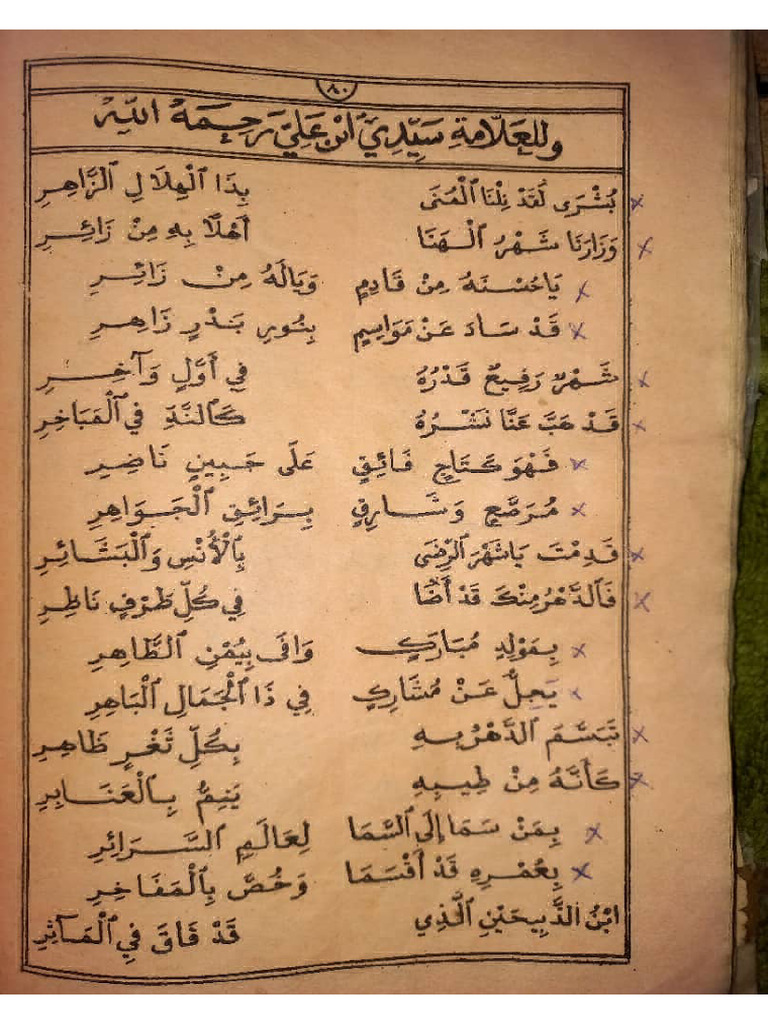 ٨٠
وللعلَّامة سَيِّدِي ابْن عَلِيّ رَحِمَهُ اللَّهُ
بُشْرَى لَقَدْ نِلْنَا الْمُنَى بِذَا الْهِلَالِ الزَّاهِرِ
وَزَارَنَا شَهْرُ الْهَنَا أَهْلًا بِهِ مِنْ زَائِرِ
يَاحُسْنَهُ مِنْ قَادِمٍ وَيَالَهُ مِنْ زَائِرِ
قَدْ سَادَ عَنْ مَوَاسِمٍ بِنُورِ بَدْرٍ زَاهِرِ
شَهْرٌ رَفِيعٌ قَدْرُهُ فِي أَوَّلٍ وَآخِرِ
قَدْ هَبَّ عَنَّا نَشْرُهُ كَالنَّدِّ فِي الْمَبَاخِرِ
فَهْوَ كَتَاجٍ فَائِقٍ عَلَى جَبِينٍ نَاضِرِ
مُرَصَّعٍ وَشَارِقٍ بِرَائِقِ الْجَوَاهِرِ
قَدِمْتَ يَاشَهْرَ الرِّضَى بِالْأُنْسِ وَالْبَشَائِرِ
فَالدَّهْرُ مِنْكَ قَدْ أَضَا فِي كُلِّ طَرْفٍ نَاظِرِ
بِمَوْلِدٍ مُبَارَكٍ وَافَى بِيُمْنِ الطَّاهِرِ
يَجِلُّ عَنْ مُشَارِكٍ فِي ذَا الْجَمَالِ الْبَاهِرِ
تَبَسَّمَ الدَّهْرُ بِهِ بِكُلِّ ثَغْرٍ ظَاهِرِ
كَأَنَّهُ مِنْ طِيبِهِ يَنِمُّ بِالْعَنَابِرِ
بِمَنْ سَمَا إِلَى السَّمَا لِعَالَمِ السَّرَائِرِ
بِعُمْرِهِ قَدْ أَقْسَمَا وَخُصَّ بِالْمَفَاخِرِ
ابْنُ الذَّبِيحَيْنِ الَّذِي قَدْ فَاقَ فِي الْمَآثِرِ